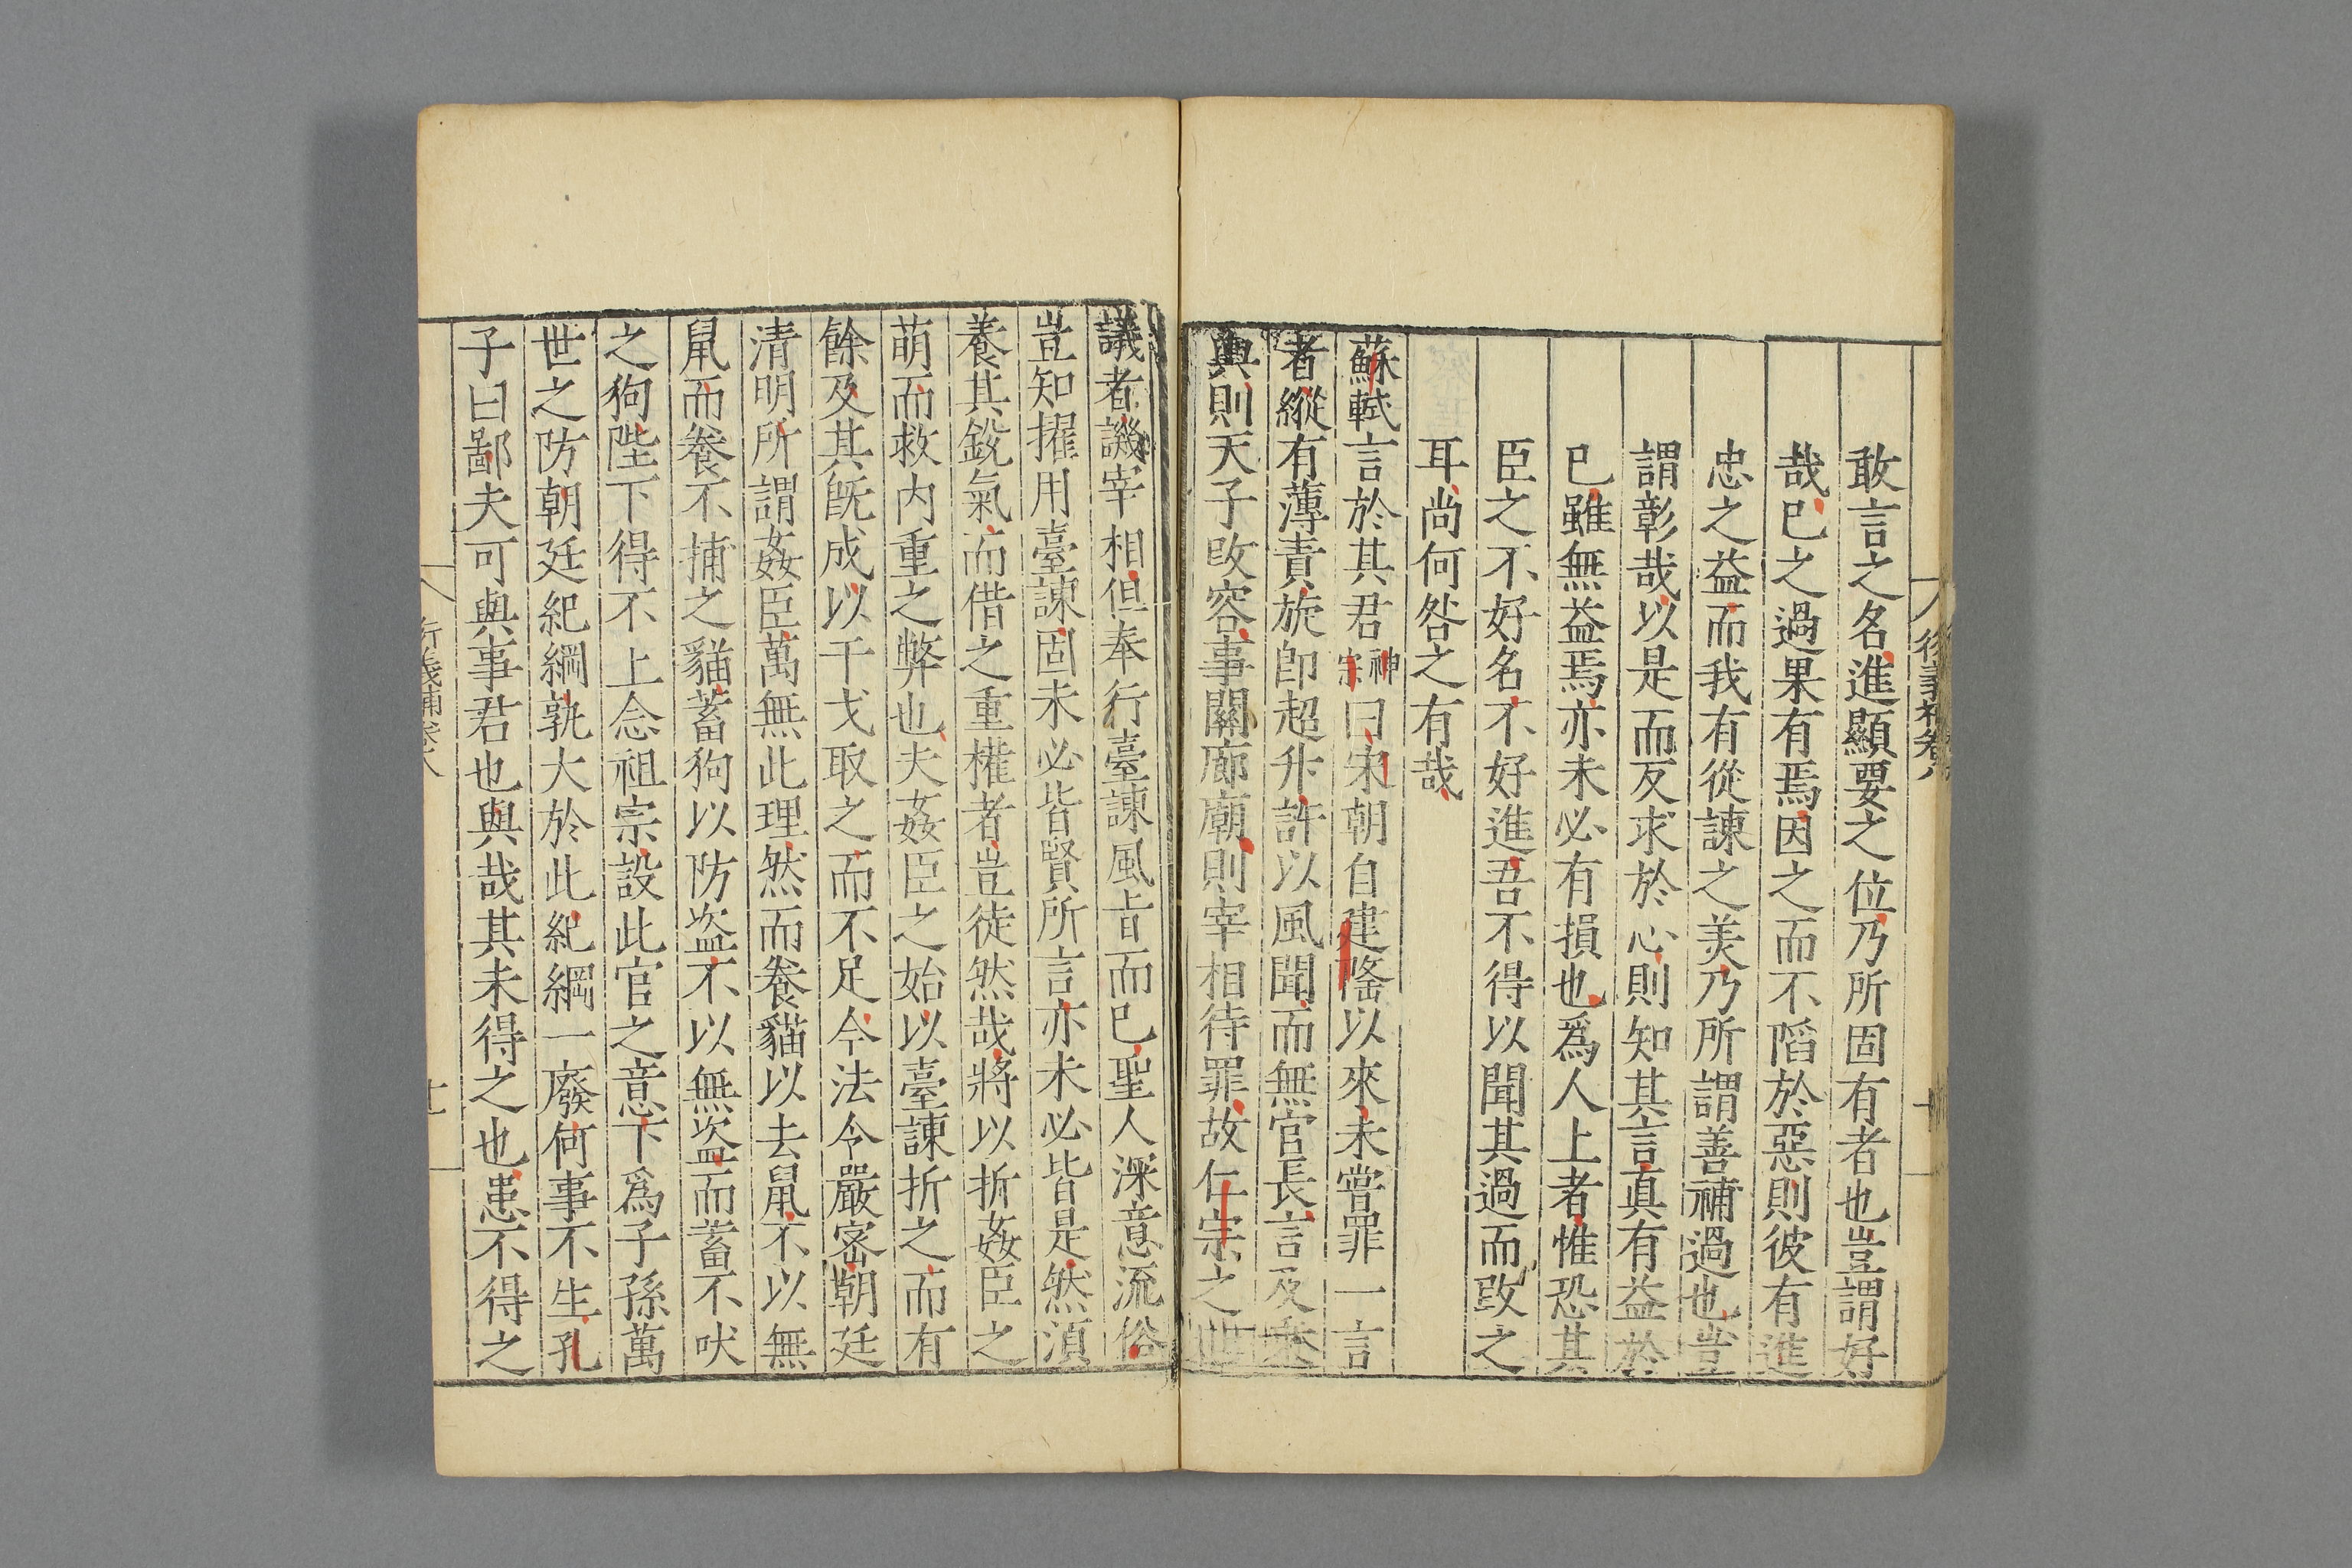 敢言之名進顯要之位乃所固有者也豈謂好
哉已之過果有焉因之而不陷於惡則彼有進
忠之益而我有從諫之美乃所謂善補過也豈
謂彰哉以是而反求於心則知其言真有益於
已雖無益焉亦未必有損也為人上者惟恐其
臣之不好名不好進吾不得以聞其過而改之
耳尚何咎之有哉
蘇軾言於其君神宗曰宋朝自建隆以來未嘗罪一言
者縱有薄責旋即超升許以風聞而無官長言及乘
輿則天子改容事關廊廟則宰相待罪故仁宗之世
議者譏宰相但奉行臺諫風旨而已聖人深意流俗
豈知擢用臺諫固未必皆賢所言亦未必皆是然須
養其銳氣而借之重權者豈徒然哉將以折姦臣之
萌而救內重之弊也夫姦臣之始以臺諫折之而有
餘及其既成以干戈取之而不足今法令嚴密朝廷
清明所謂姦臣萬無此理然而養貓以去鼠不以無
鼠而養不捕之貓蓄狗以防盜不以無盜而蓄不吠
之狗陛下得不上念祖宗設此官之意下為子孫萬
世之防朝廷紀綱孰大於此紀綱一廢何事不生孔
子曰鄙夫可與事君也與哉其未得之也患不得之
衍義補卷八
十一